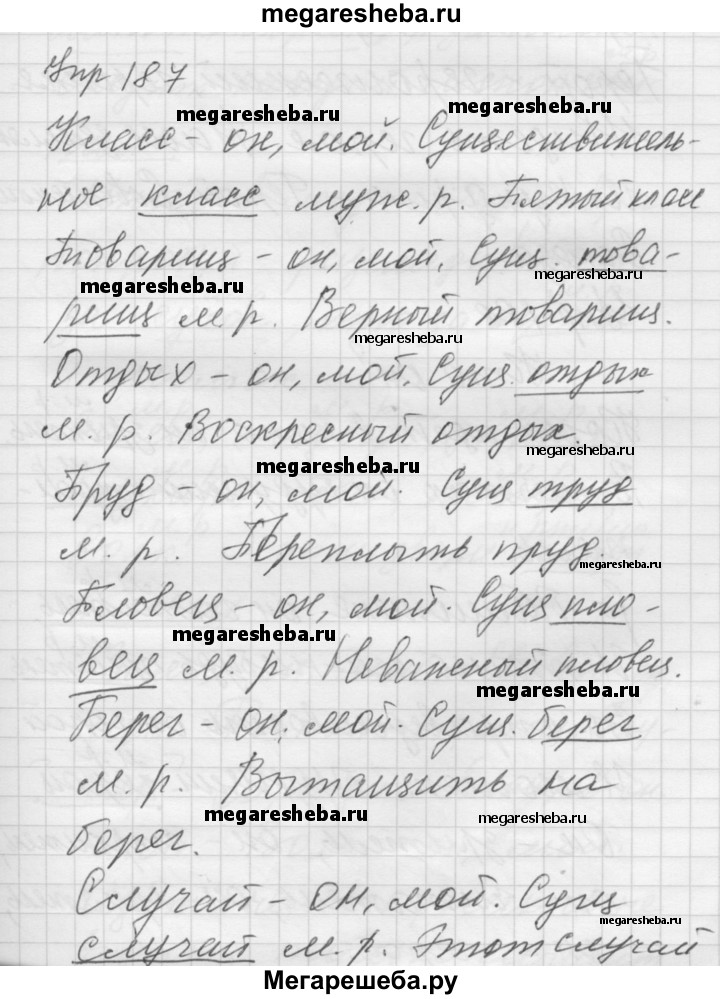 megaresheba.ru
Упр 187
megaresheba.ru megaresheba.ru
Класс - он, мой. Существитель-
ное класс муж. р. Пятый класс
Товарищ - он, мой. Сущ. това-
megaresheba.ru
megaresheba.ru
рищ м. р. Верный товарищ.
megaresheba.ru
Отдых - он, мой. Сущ. отдых
м. р. Воскресный отдых.
megaresheba.ru
megaresheba.ru
Пруд - он, мой. Сущ пруд
м. р. Переплыть пруд.
megaresheba.ru
Пловец - он, мой. Сущ пло-
megaresheba.ru
вец м. р. Неважный пловец.
megaresheba.ru
Берег - он, мой. Сущ. берег
м. р. Вытащить на
megaresheba.ru megaresheba.ru
берег.
Случай - он, мой. Сущ
megaresheba.ru
случай м. р. Этот случай
Мегарешеба.ру